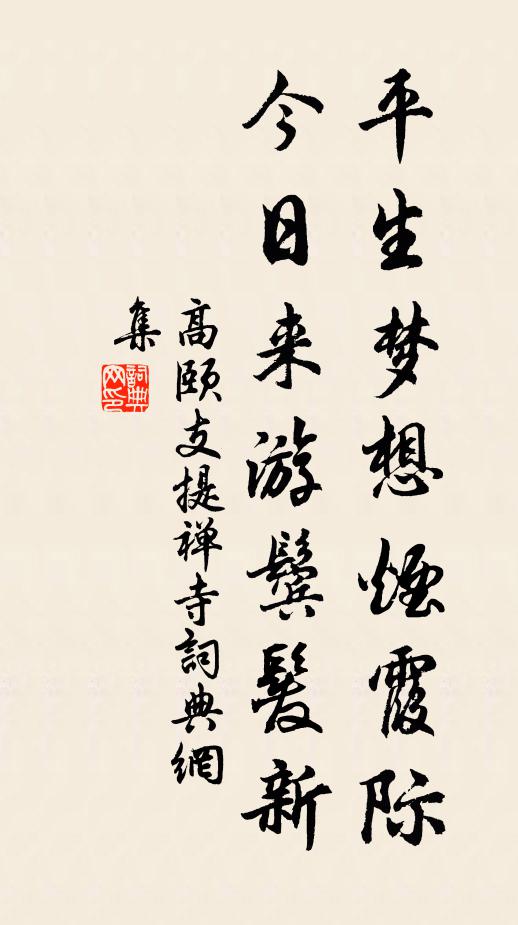 平生梦想煙霞际
今日来游鬓髮新
高颐支提禅寺詞典網
集
詞典网印